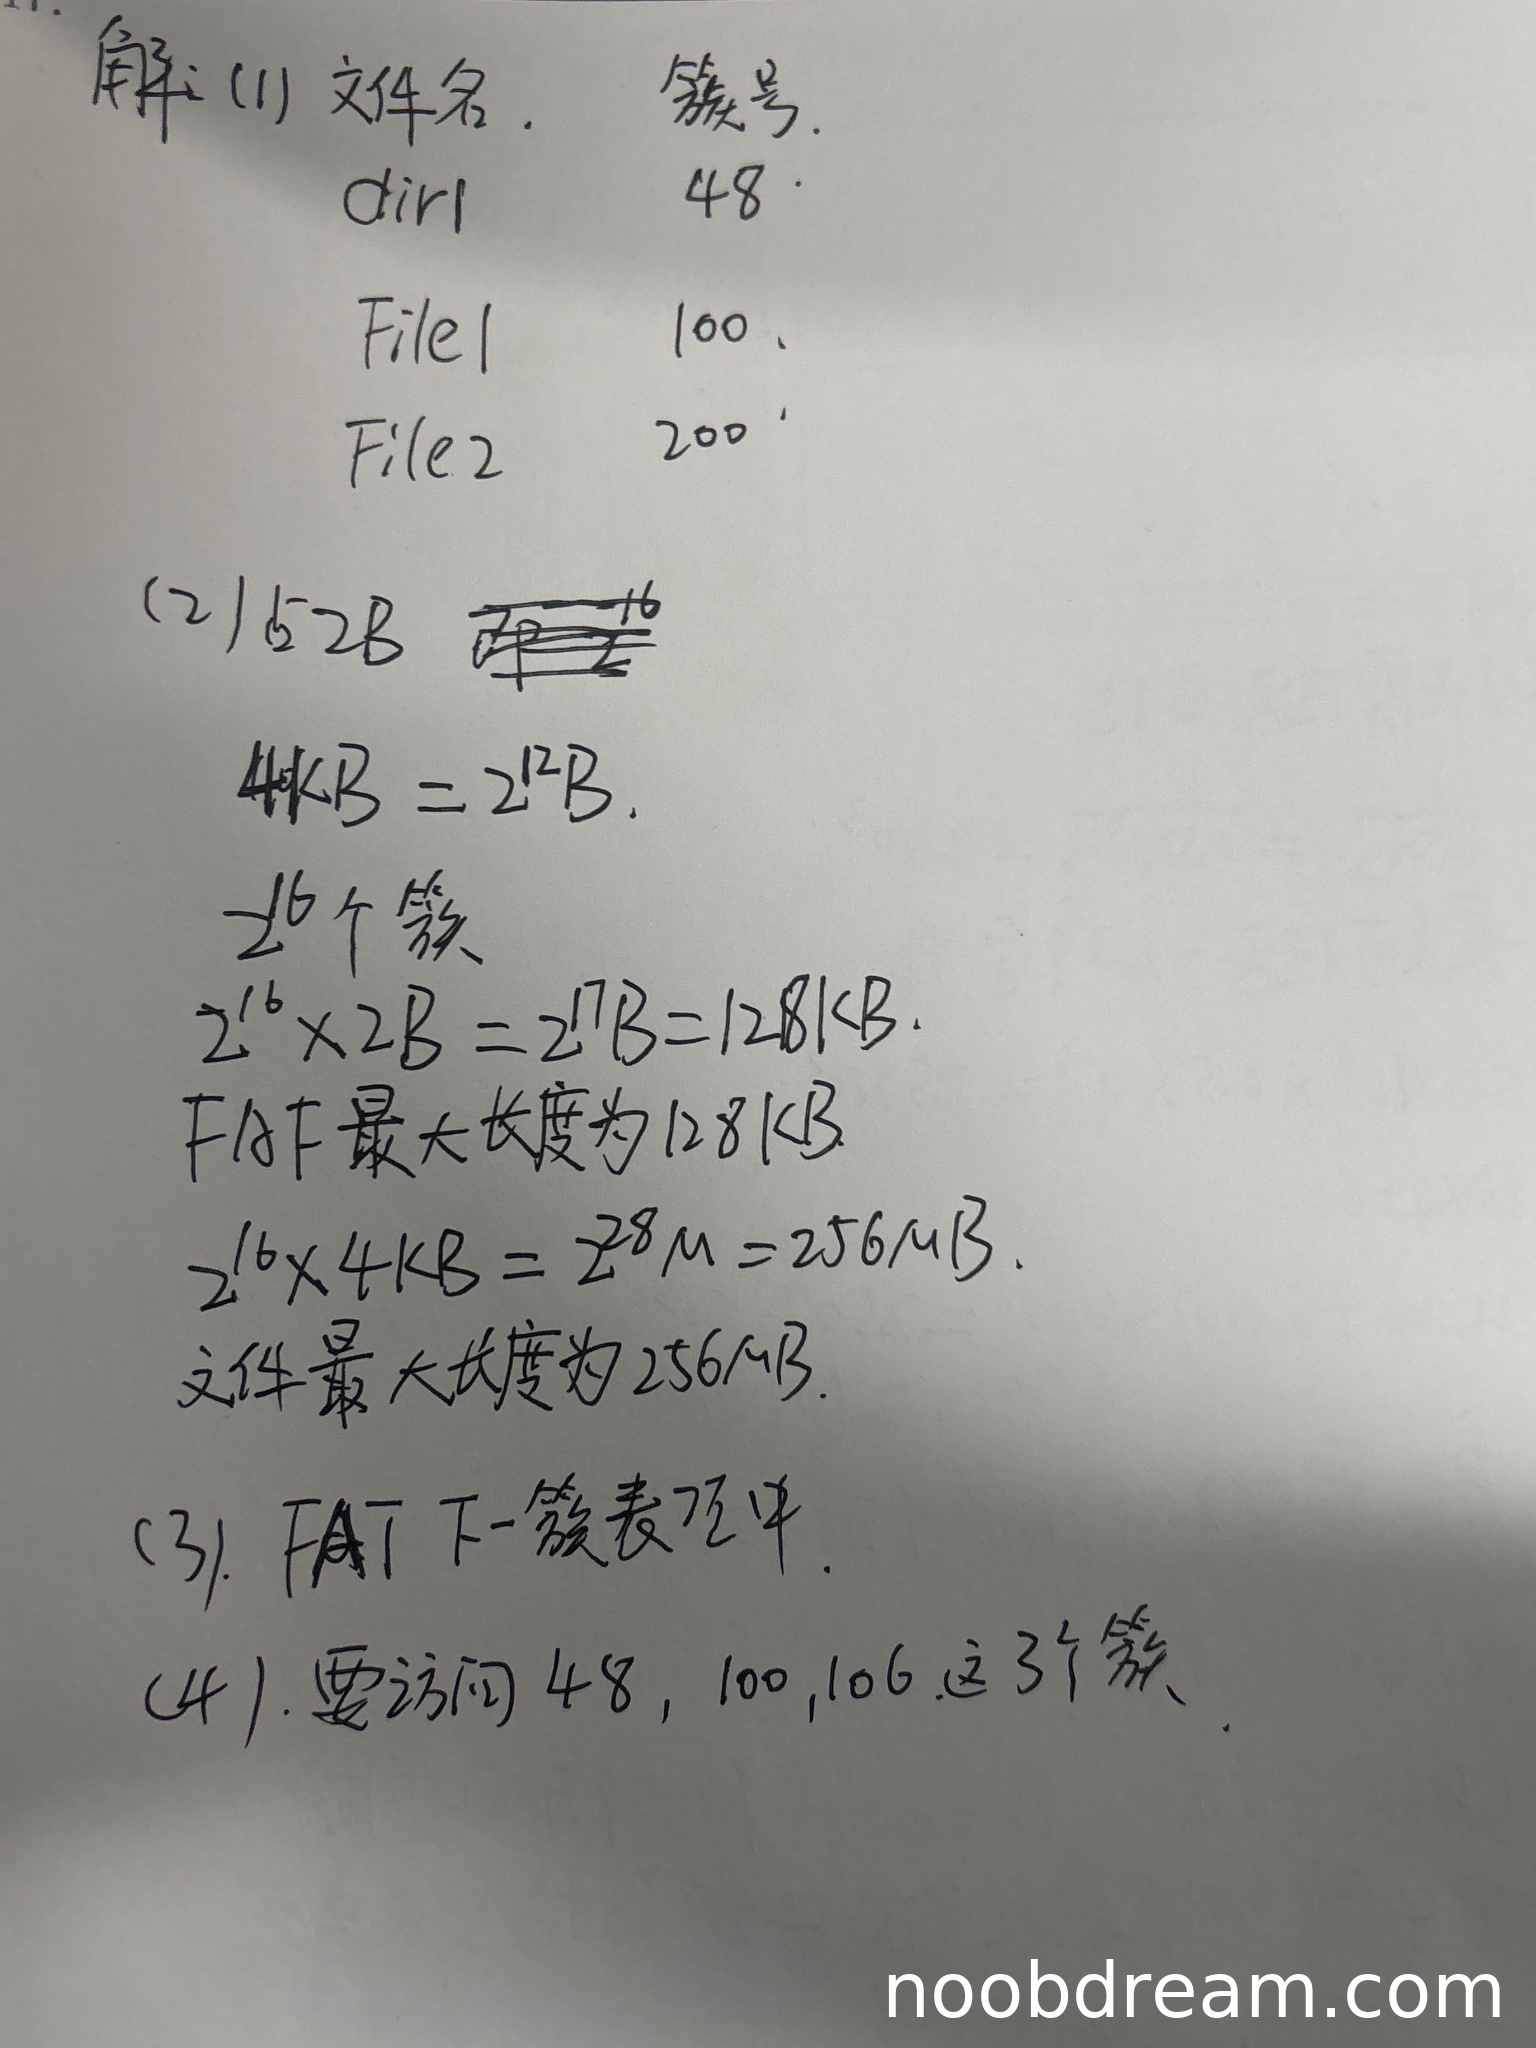 17.
解:(1) 文件名. 簇号.
dir1 48.
File1 100.
File2 200
(2) 占2B
4KB = 2^12B.
2^16个簇
2^16×2B = 2^17B = 128KB.
FAF最大长度为128KB
2^16×4KB = 2^28M = 256MB.
文件最大长度为256MB.
(3). FAT下一簇表项中.
(4). 要访问48, 100, 106.这3个簇.
noobdream.com